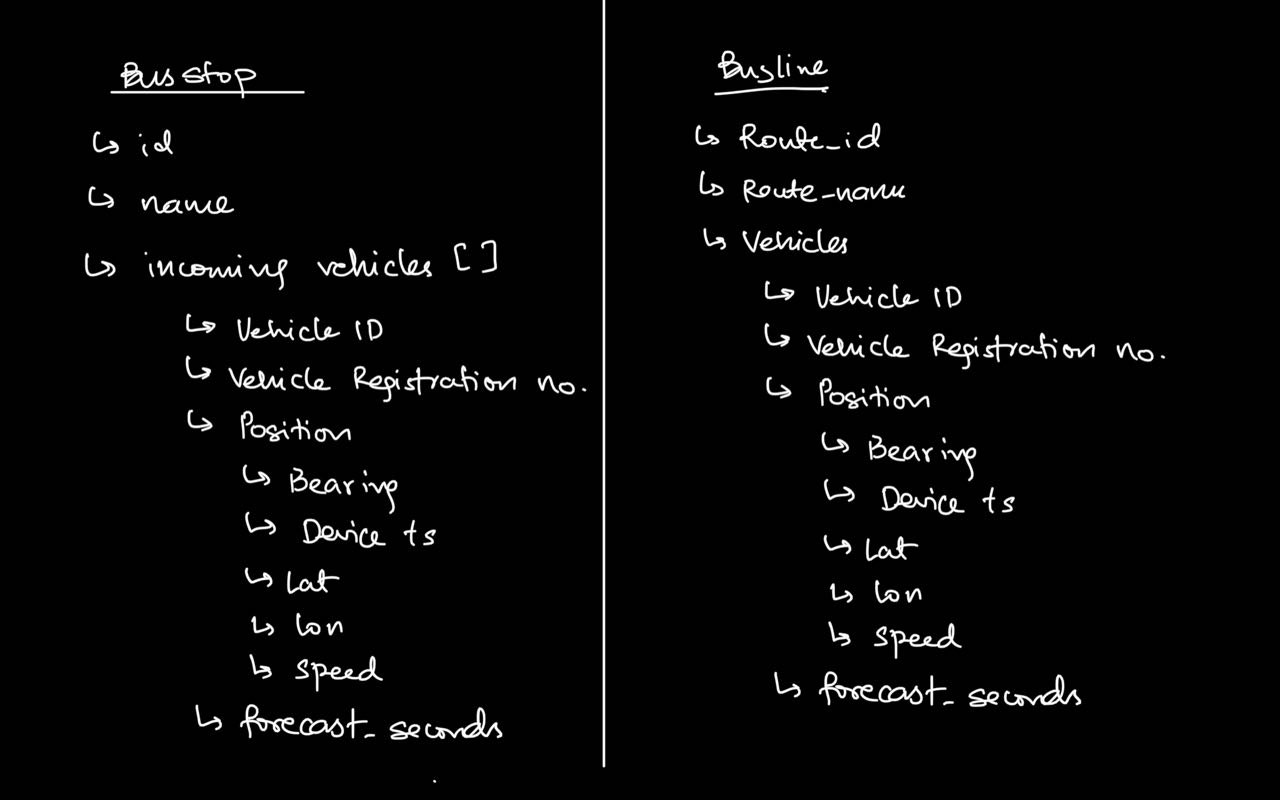 Bus stop
↳ id
↳ name
↳ incoming vehicles []
↳ Vehicle ID
↳ Vehicle Registration no.
↳ Position
↳ Bearing
↳ Device ts
↳ Lat
↳ Lon
↳ Speed
↳ forecast_seconds
Busline
↳ Route_id
↳ Route_name
↳ Vehicles
↳ Vehicle ID
↳ Vehicle Registration no.
↳ Position
↳ Bearing
↳ Device ts
↳ Lat
↳ Lon
↳ Speed
↳ forecast_seconds